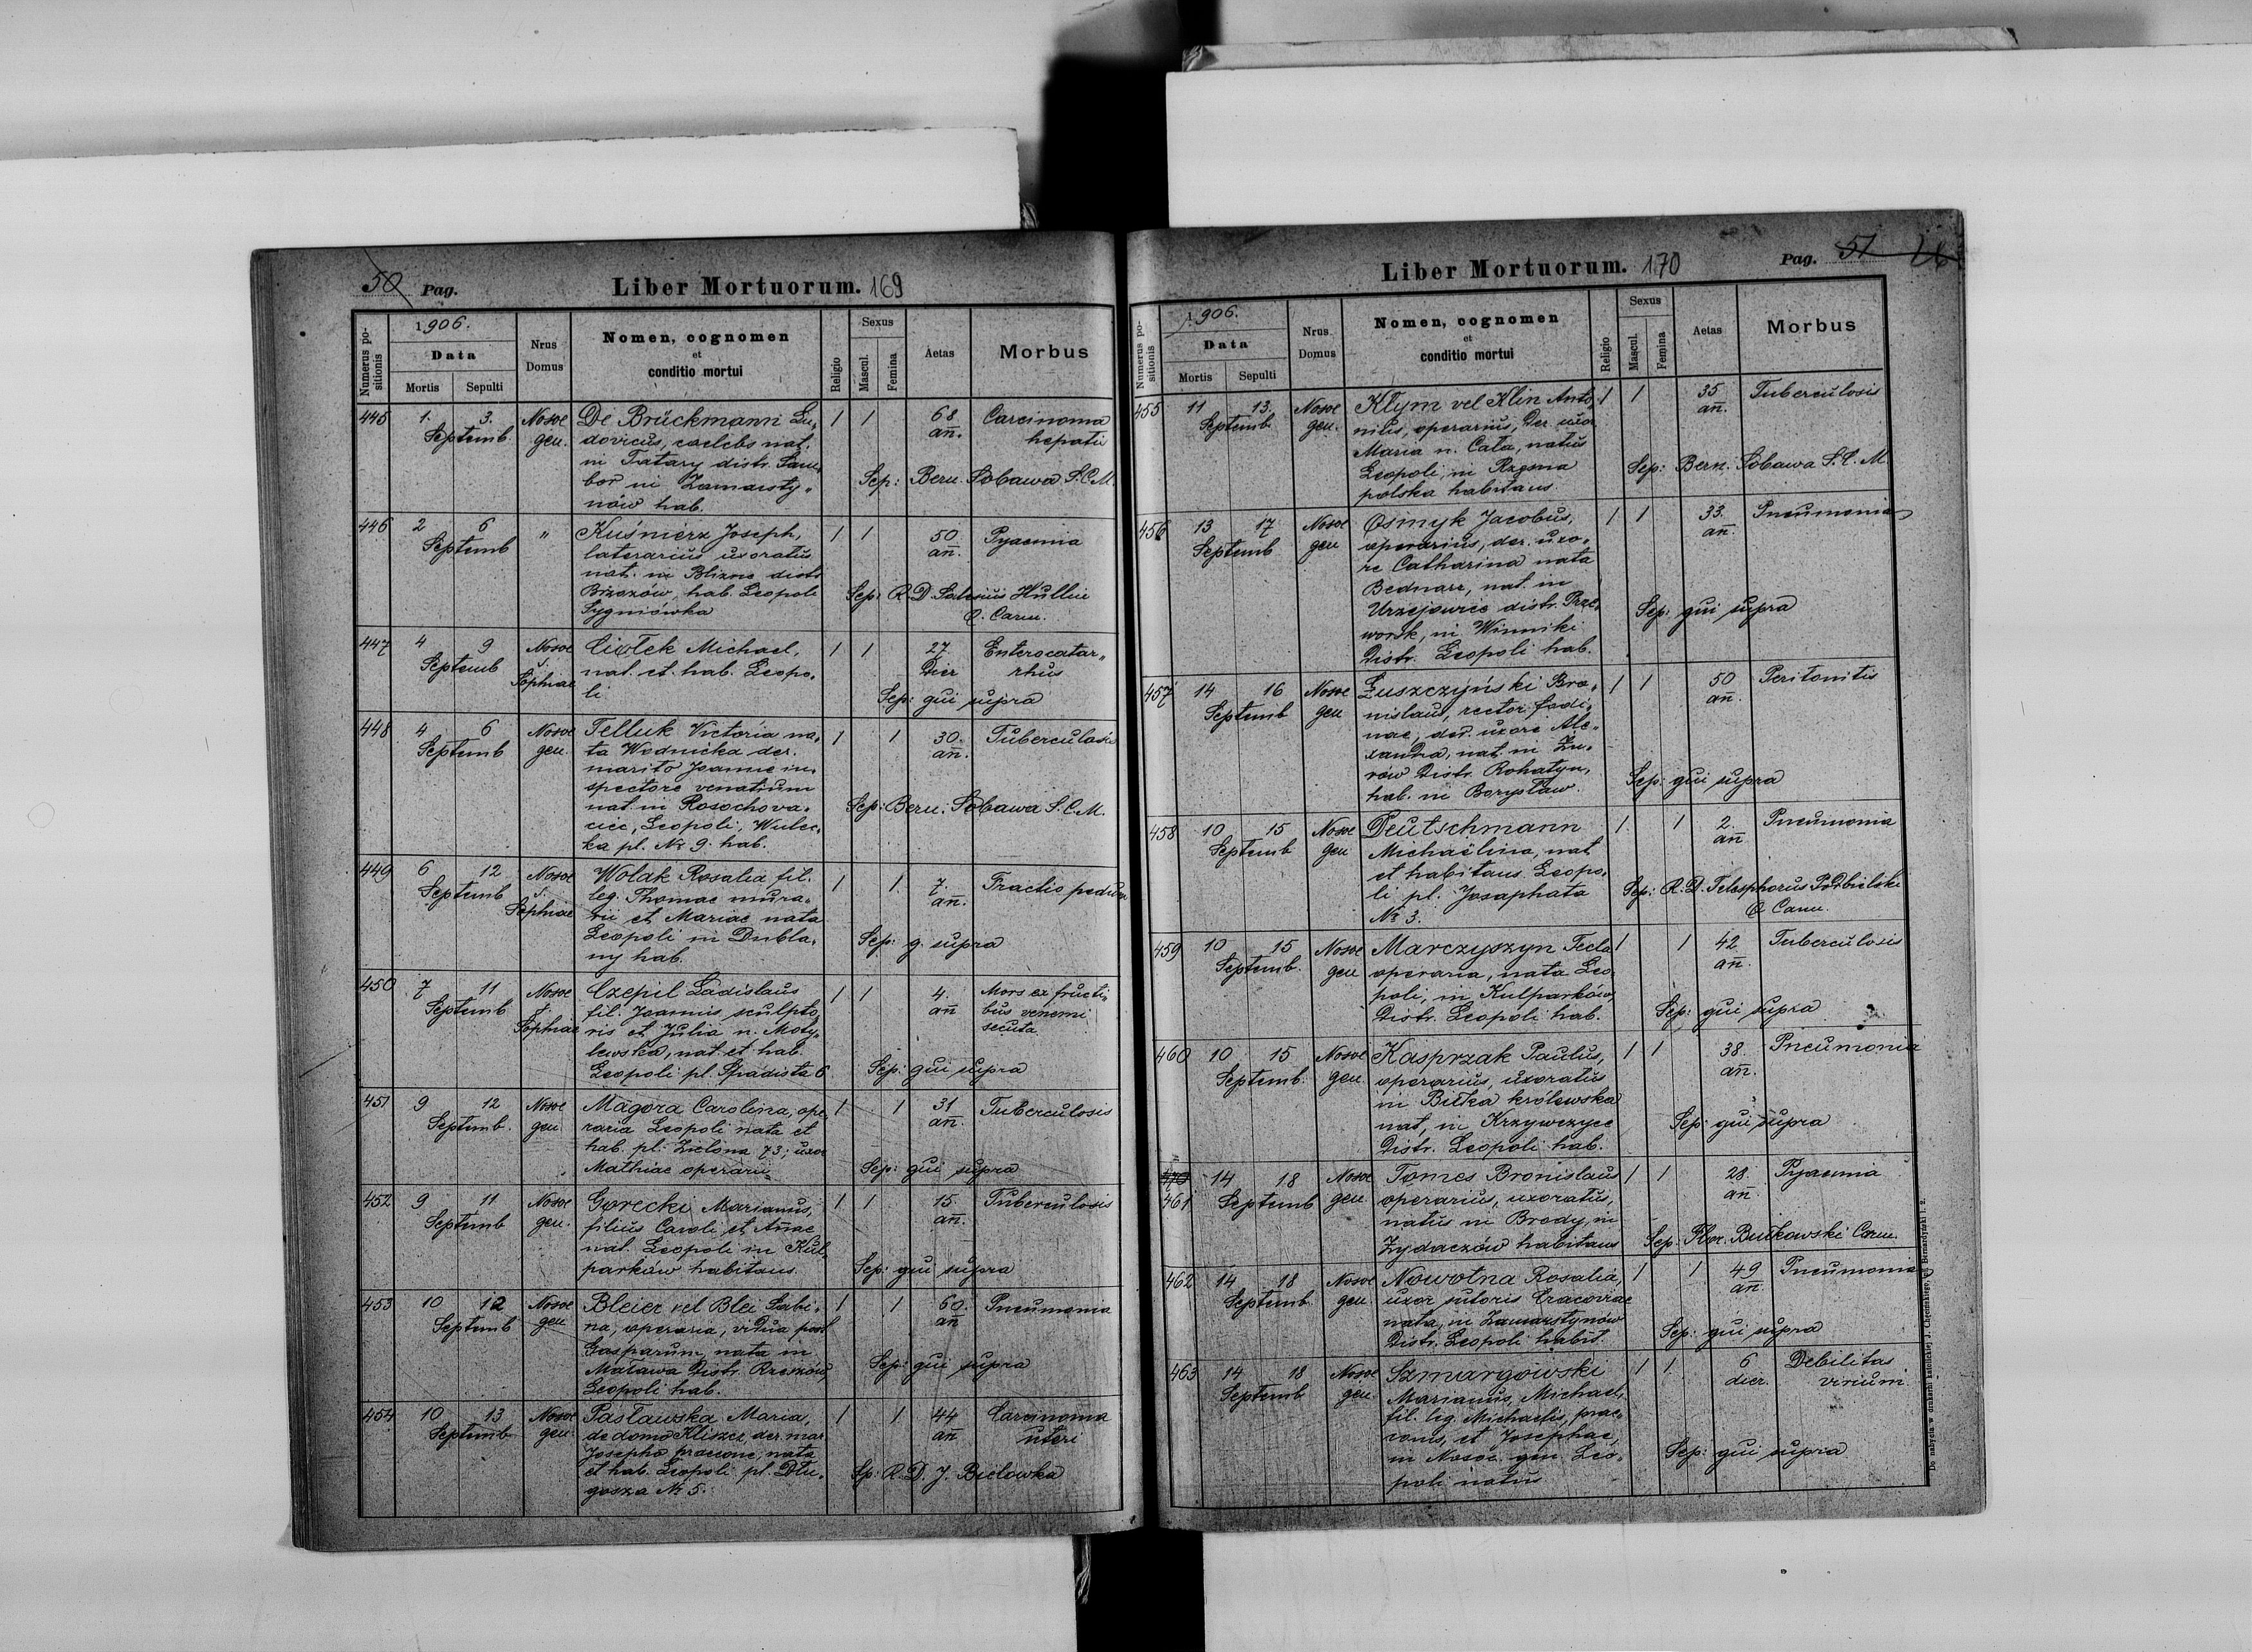 50 Pag.
Liber Mortuorum. 169
Numerus positionis
1906.
Data
Mortis
Sepulti
Nrus Domus
Nomen, cognomen
et
conditio mortui
Religio
Sexus
Mascul.
Femina
Aetas
Morbus
445 1. 3. Nosoc De Brückmann Lu„ 1 1 68 Carcinoma
Septemb. gen. dovicus, caelebs nat. añ. hepatis
in Tatary distr. Sam„
bor in Zamarsty„ Sep: Bern. Sobawa S.C.M.
nów hab.
446 2 6 „ Kuśnierz Joseph, 1 1 50 Pyaemia
Septemb laterarius uxoratus añ.
nat. in Blizne distr
Brzozów, hab. Leopoli Sep: R.D. Salesius Hullin
Sygniówka O. Carm.
447 4 9 Nosoc Ciołek Michael, 1 1 27 Enterocatar„
Septemb s. nat. et hab. Leopo„ Dier rhus
Sophiae li Sep: qui supra
448 4 6 Nosoc Telluk Victoria na„ 1 1 30. Tuberculosis
Septemb gen. ta Wodnicka der. añ.
marito Joanne in„
spectore venatium
nat. in Rosochowa„ Sep: Bern. Sobawa S.C.M.
ciec, Leopoli, Wulec„
ka pl. № 9. hab.
449 6 12 Nosoc Wolak Rosalia fil. 1 1. 7. Fractio pedum
Septemb s. leg. Thomae mura„ añ.
Sophiae rii et Mariae nata
Leopoli in Dubla„ Sep: q. supra
ny hab.
450 7 11 Nosoc Czepil Ladislaus 1 1 4. Mors ex fructi„
Septemb s. fil. Joannis sculpto„ añ bus venemi
Sophiae ris et Julia n. Moty„ secuta
lewska, nat. et hab.
Leopoli pl. 6. Sep: qui supra
451 9 12 Nosoc Magora Carolina, ope„ 1 1 31 Tuberculosis
Septemb. gen. raria Leopoli nata et añ.
hab. pl. Zielona 73; uxor
Mathiae operarii Sep: qui supra
452 9 11 Nosoc Gorecki Marianus, 1 1 15 Tuberculosis
Septemb gen. filius Caroli et Añae añ.
nat. Leopoli in Kul„
parków habitans. Sep: qui supra
453 10 12 Nosoc Bleier vel Blei Sabi„ 1 1 60. Pneumonia
Septemb gen na, operaria, vidua post añ
Gasparum, nata in
Malawa Distr. Rzeszów, Sep: qui supra
Leopoli hab.
454 10 13 Nosoc Pasławska Maria, 1 1 44 Carcinoma
Septemb gen. de domo Kliszcz, der. mar añ uteri
Josepho praecone, nata
et hab. Leopoli pl. Dłu„ Sp: R.D. J. Bielowka
gosza № 5.
Liber Mortuorum. 170
Pag. 51
Numerus positionis
1906.
Data
Mortis
Sepulti
Nrus Domus
Nomen, cognomen
et
conditio mortui
Religio
Sexus
Mascul.
Femina
Aetas
Morbus
455 11 13. Nosoc Kłym vel Klin Anto„ 1 1 35 Tuberculosis
Septemb gen. nius, operarius, Der. uxor añ.
Maria n. Cała, natus
Leopoli, in Rzęsna Sep: Bern. Sobawa S.C.M.
polska habitans.
456 13 17 Nosoc Osmyk Jacobus, 1 1 33. Pneumonia
Septemb gen operarius, der. uxo„ añ.
re Catharina nata
Bednarz, nat. in
Urzejowice distr. Prze„ Sep: qui supra
worsk, in Winniki
Distr. Leopoli hab.
457 14 16 Nosoc Łuszczyński Bro„ 1 1 50 Peritonitis
Septemb gen nislaus, rector fodi„ añ.
nae, der. uxore Ale„
xandra, nat. in Żu„
rów Distr. Rohatyn, Sep: qui supra
hab. in Borysław.
458 10 15 Nosoc Deutschmann 1. 1 2. Pneumonia
Septemb gen Michaëlina, nat añ
et habitans Leopo„
li pl. Josaphata Sep: R.D. Telesphorus Podbielski
№ 3. O Carm.
459 10 15 Nosoc Marczyszyn Tecla 1 1 42 Tuberculosis
Septemb. gen operaria, nata Leo„ añ.
poli, in Kulparków,
Distr. Leopoli hab. Sep: qui supra
460 10 15 Nosoc Kasprzak Paulus, 1 1 38. Pneumonia
Septemb. gen. operarius, uxoratus añ.
in Biłka królewska
nat, in Krzywczyce Sep: qui supra
Distr. Leopoli hab.
470 14 18 Nosoc Tomes Bronislaus 1 1 28. Pyaemia
461 Septemb gen. operarius, uxoratus, añ.
natus in Brody, in
Żydaczów habitans Sep: Flor. Bułkowski Carm.
462 14 18 Nosoc Nowotna Rosalia, 1 1 49 Pneumonia
Septemb gen. uxor sutoris Cracoviae añ.
nata, in Zamarstynów
Distr. Leopoli habit. Sep: qui supra
463 14 18 Nosoc Szmargowski 1 1 6 Debilitas
Septemb gen. Marianus, Michael, dier. virium.
fil. leg. Michaelis, prae„
conis, et Josephae,
in Nosoc. gen. Leo„ Sep: qui supra
poli natus
Do nabycia w drukarni katolickiej J. Chęcińskiego, pl. Bernardyński l. 2.